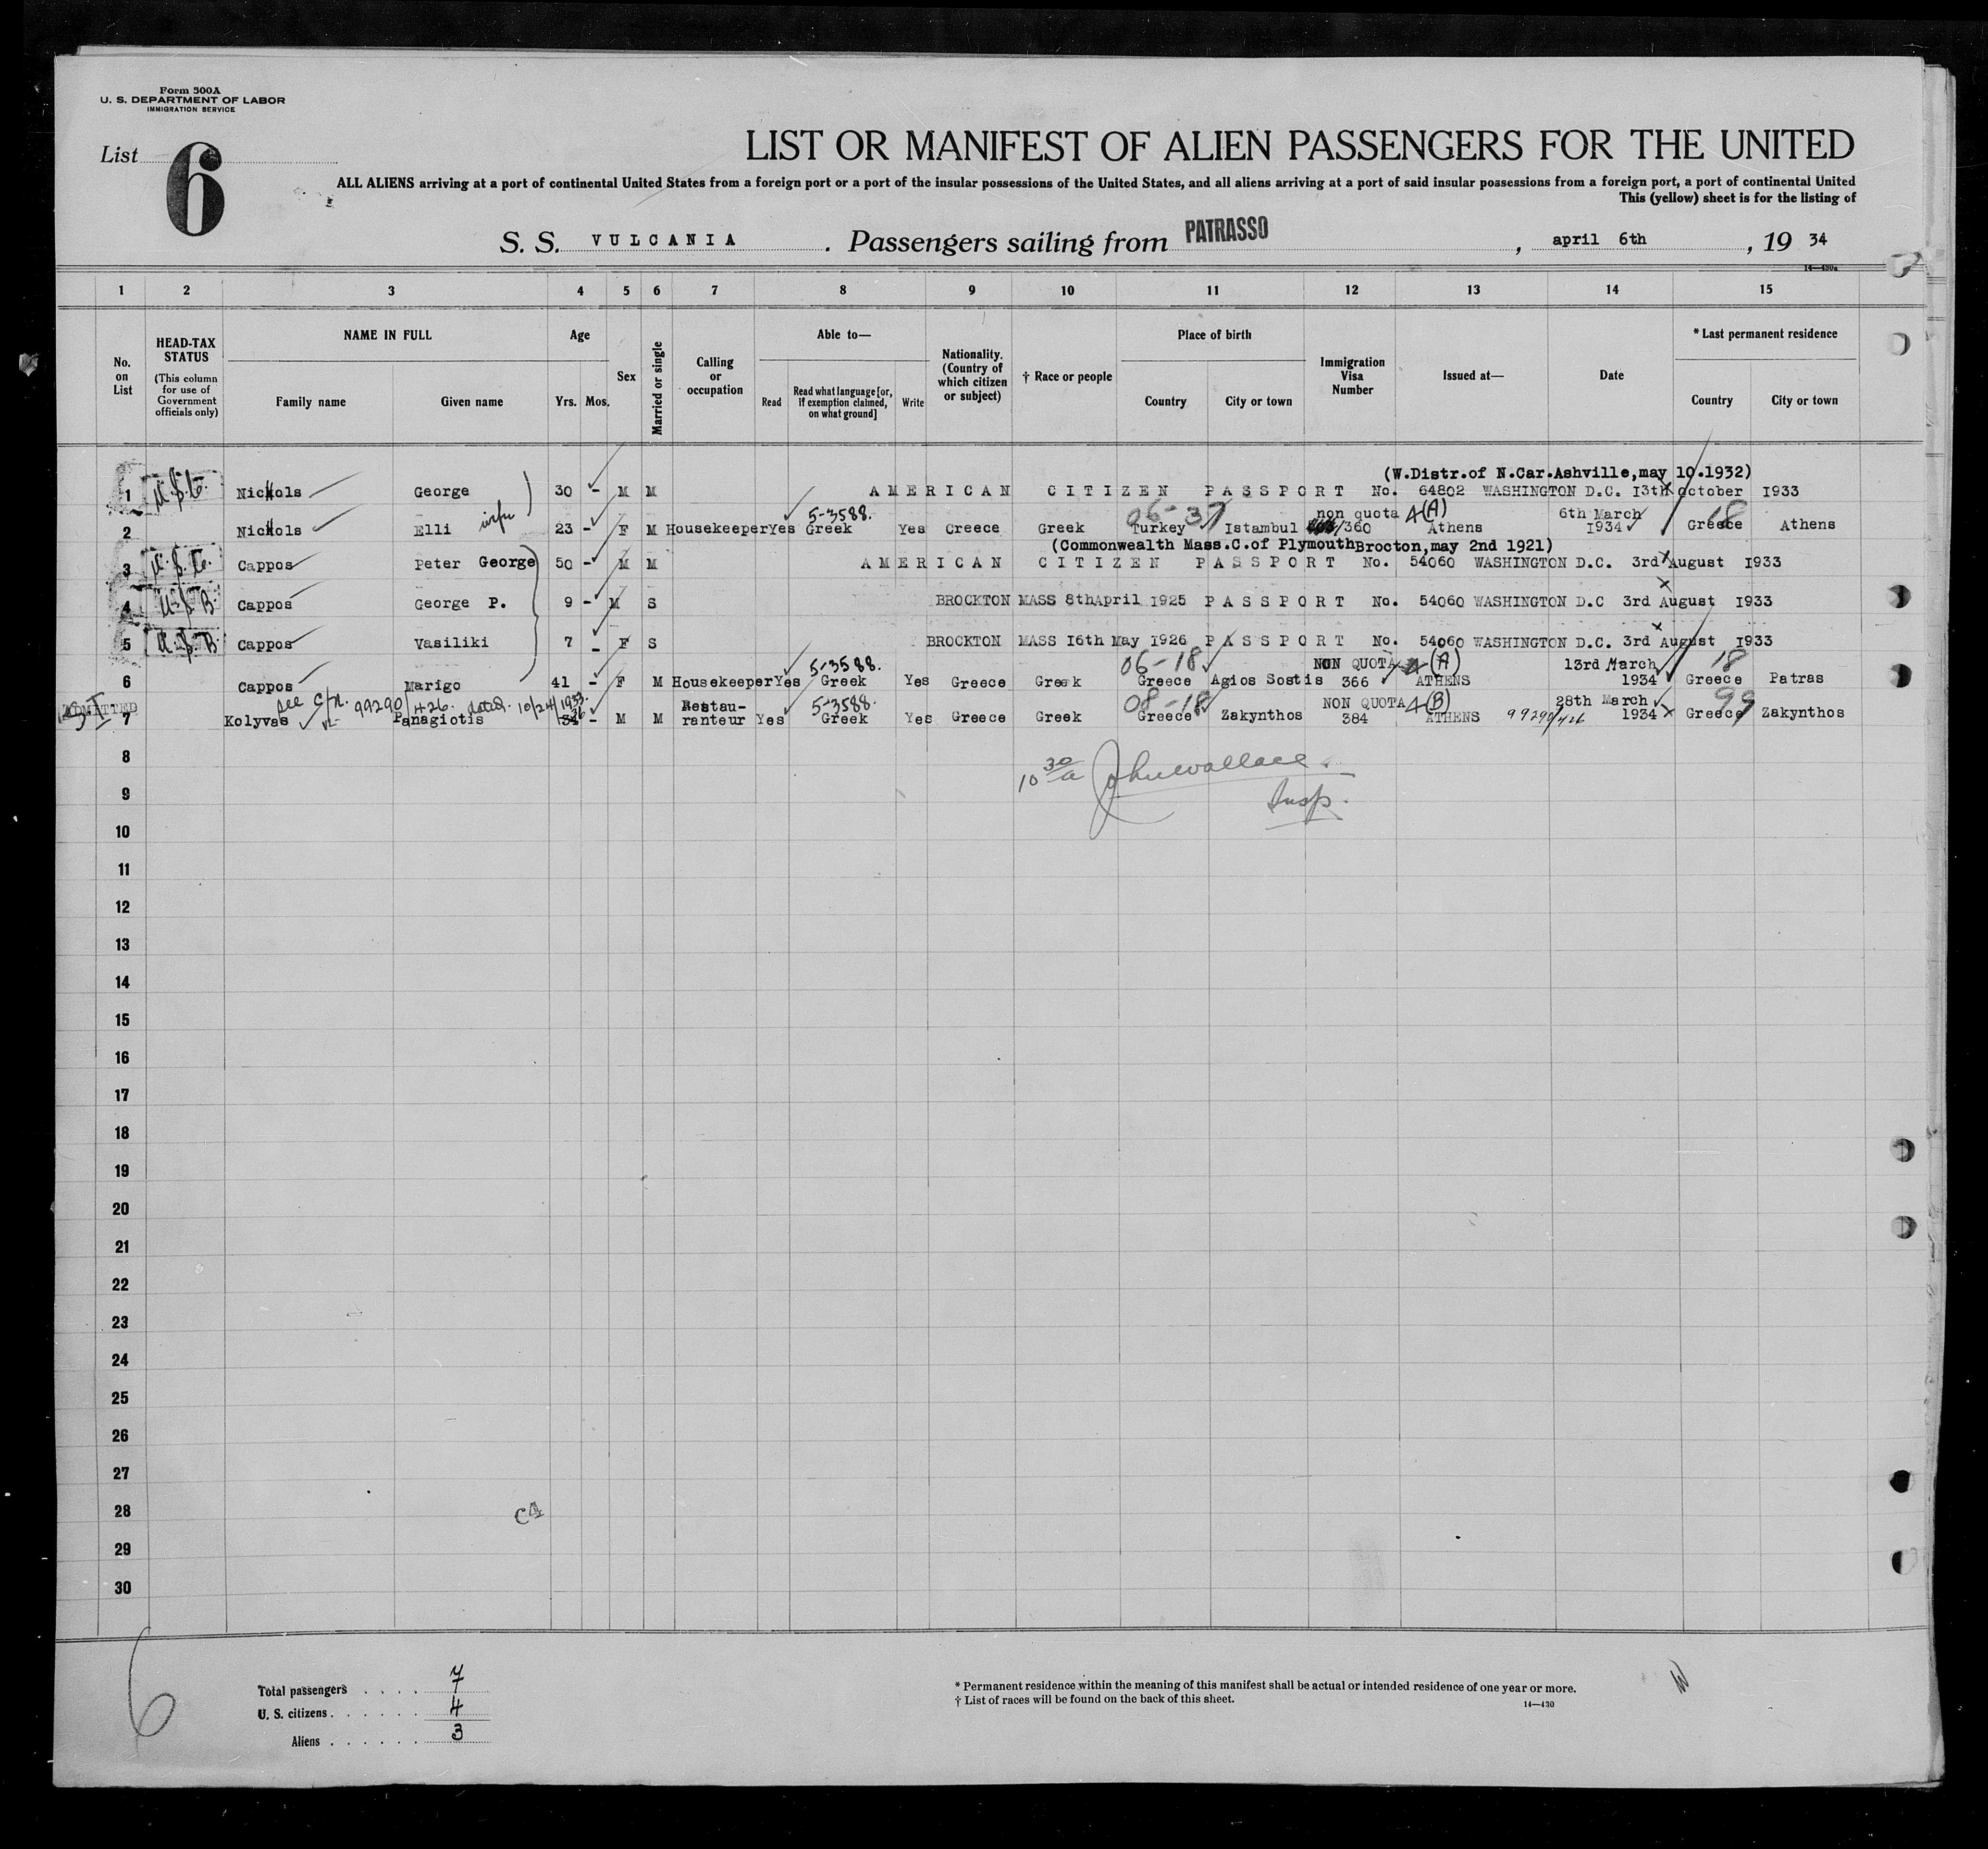 Form 500A
U. S. DEPARTMENT OF LABOR
IMMIGRATION SERVICE
List 6
LIST OR MANIFEST OF ALIEN PASSENGERS FOR THE UNITED
ALL ALIENS arriving at a port of continental United States from a foreign port or a port of the insular possessions of the United States, and all aliens arriving at a port of said insular possessions from a foreign port, a port of continental United
This (yellow) sheet is for the listing of
S. S. VULCANIA . Passengers sailing from PATRASSO , april 6th , 19 34
14—430a
1 2 3 4 5 6 7 8 9 10 11 12 13 14 15
No. on List
HEAD-TAX STATUS
(This column for use of Government officials only)
NAME IN FULL
Family name Given name
Age
Yrs. Mos.
Sex
Married or single
Calling or occupation
Able to—
Read
Read what language [or, if exemption claimed, on what ground]
Write
Nationality. (Country of which citizen or subject)
† Race or people
Place of birth
Country City or town
Immigration Visa Number
Issued at—
Date
* Last permanent residence
Country City or town
(W.Distr.of N.Car.Ashville,may 10.1932)
1 U.S.C. Nichols George 30 - M M AMERICAN CITIZEN PASSPORT No. 64802 WASHINGTON D.C. I3th october I933
wife 5-3588. 06-37 non quota 4(A) 6th March 18
2 Nichols Elli 23 - F M Housekeeper Yes Greek Yes Greece Greek Turkey Istambul /360 Athens I934 Greece Athens
(Commonwealth Mass.C.of Plymouth Brocton,may 2nd 1921)
3 U.S.C. Cappos Peter George 50 - M M AMERICAN CITIZEN PASSPORT No. 54060 WASHINGTON D.C. 3rd August I933
4 U.S.B. Cappos George P. 9 - M S BROCKTON MASS 8th April I925 PASSPORT No. 54060 WASHINGTON D.C 3rd August I933
5 U.S.B Cappos Vasiliki 7 - F S BROCKTON MASS I6th May I926 PASSPORT No. 54060 WASHINGTON D.C. 3rd August I933
5-3588. 06-18 NON QUOTA 4 (A) 13rd March 18
6 Cappos Marigo 41 - F M Housekeeper Yes Greek Yes Greece Greek Greece Agios Sostis 366 ATHENS 1934 Greece Patras
ADMITTED see C/N. 99290/426. dated. 10/24/1933. Restau- 5-3588. 08-18 NON QUOTA 4(B) 28th March 99
7 Kolyvas Panagiotis 36 - M M ranteur Yes Greek Yes Greece Greek Greece Zakynthos 384 ATHENS 99290/426 1934 Greece Zakynthos
8
10 30/a John Wallace.
9
Insp.
10
11
12
13
14
15
16
17
18
19
20
21
22
23
24
25
26
27
28
C4
29
30
6
Total passengers . . . . 7
U. S. citizens . . . . . . 4
Aliens . . . . . . 3
* Permanent residence within the meaning of this manifest shall be actual or intended residence of one year or more.
† List of races will be found on the back of this sheet.
14—430
W